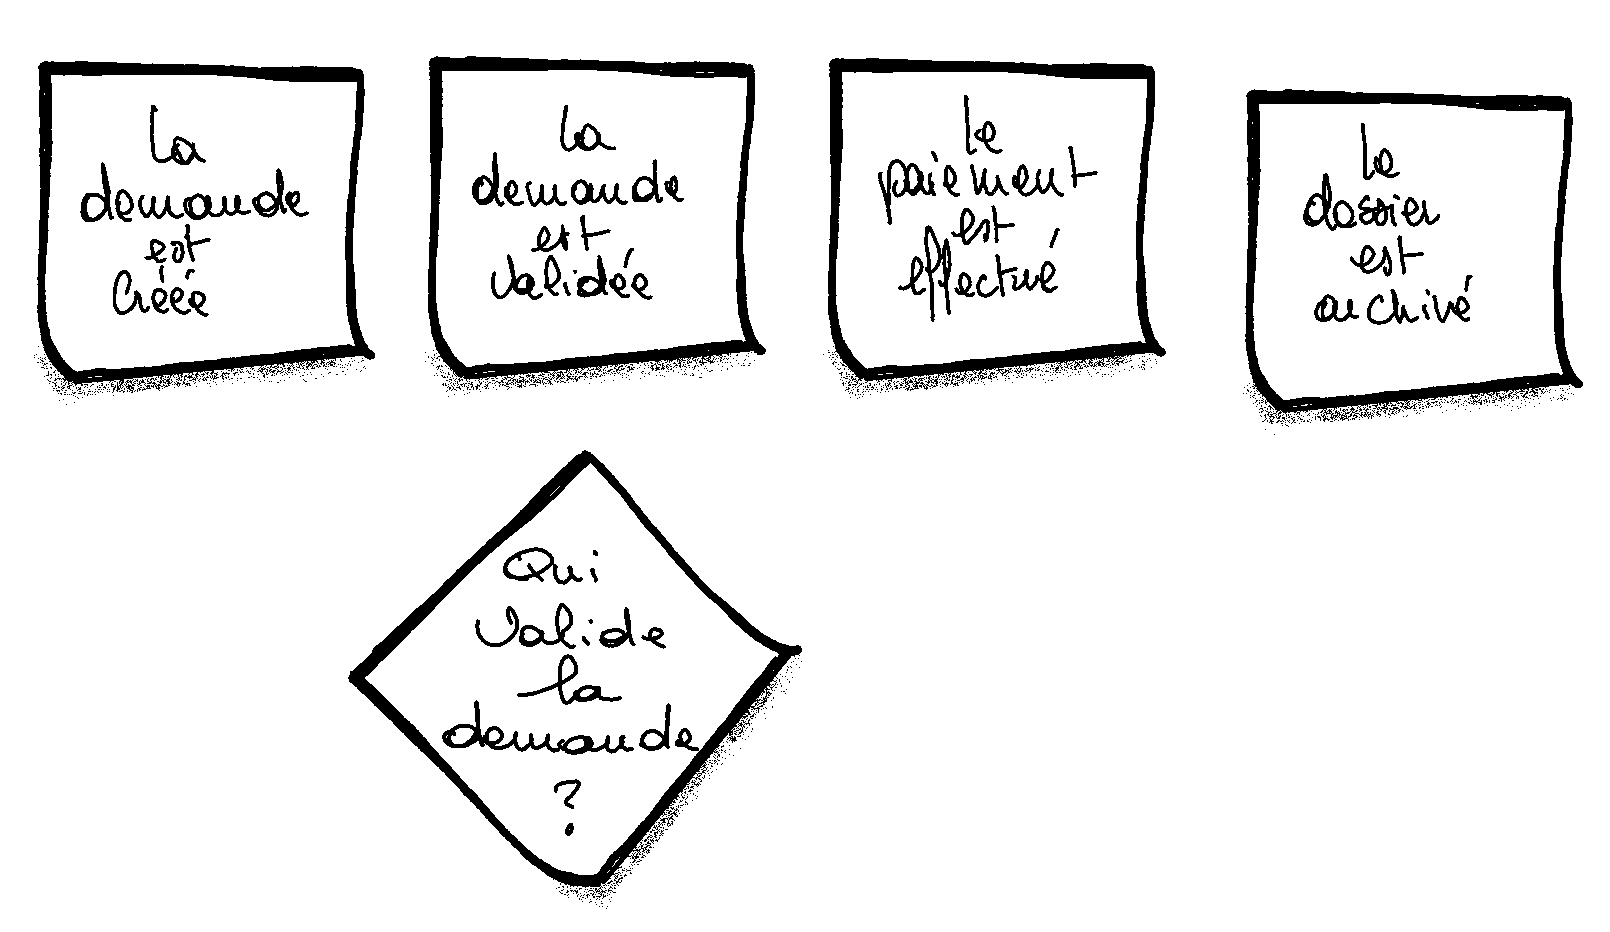 La
demande
est
Créée
La
demande
est
Validée
le
paiement
est
effectué
le
dossier
est
archivé
Qui
Valide
la
demande
?